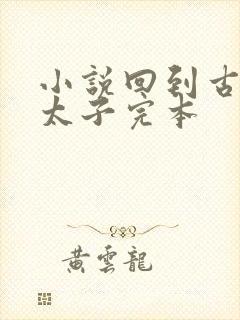 小説回到古
太子完本
黃雲龍